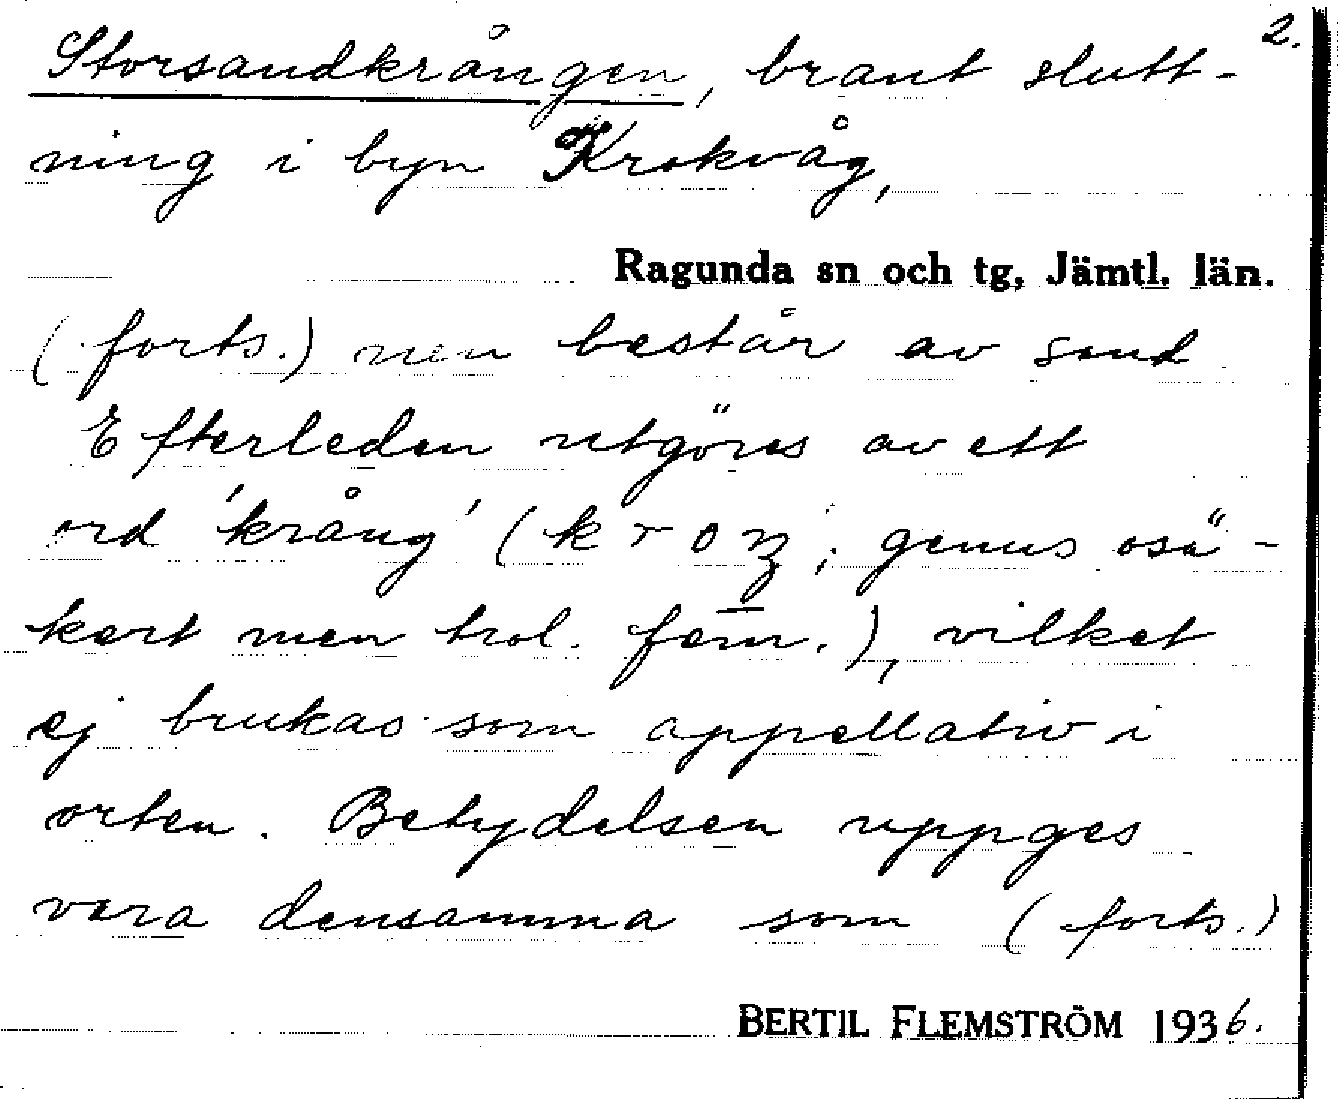 2.
Storsandkrången, brant slutt-
ning i byn Krokvåg,
Ragunda sn och tg, Jämtl. län.
(forts.) nen består av sand
Efterleden utgöres av ett
ord 'krång' (kroŋ; genus osä-
kert men trol. fem.), vilket
ej brukas som appellativ i
orten. Betydelsen uppges
vara densamma som (forts.)
BERTIL FLEMSTRÖM 1936.